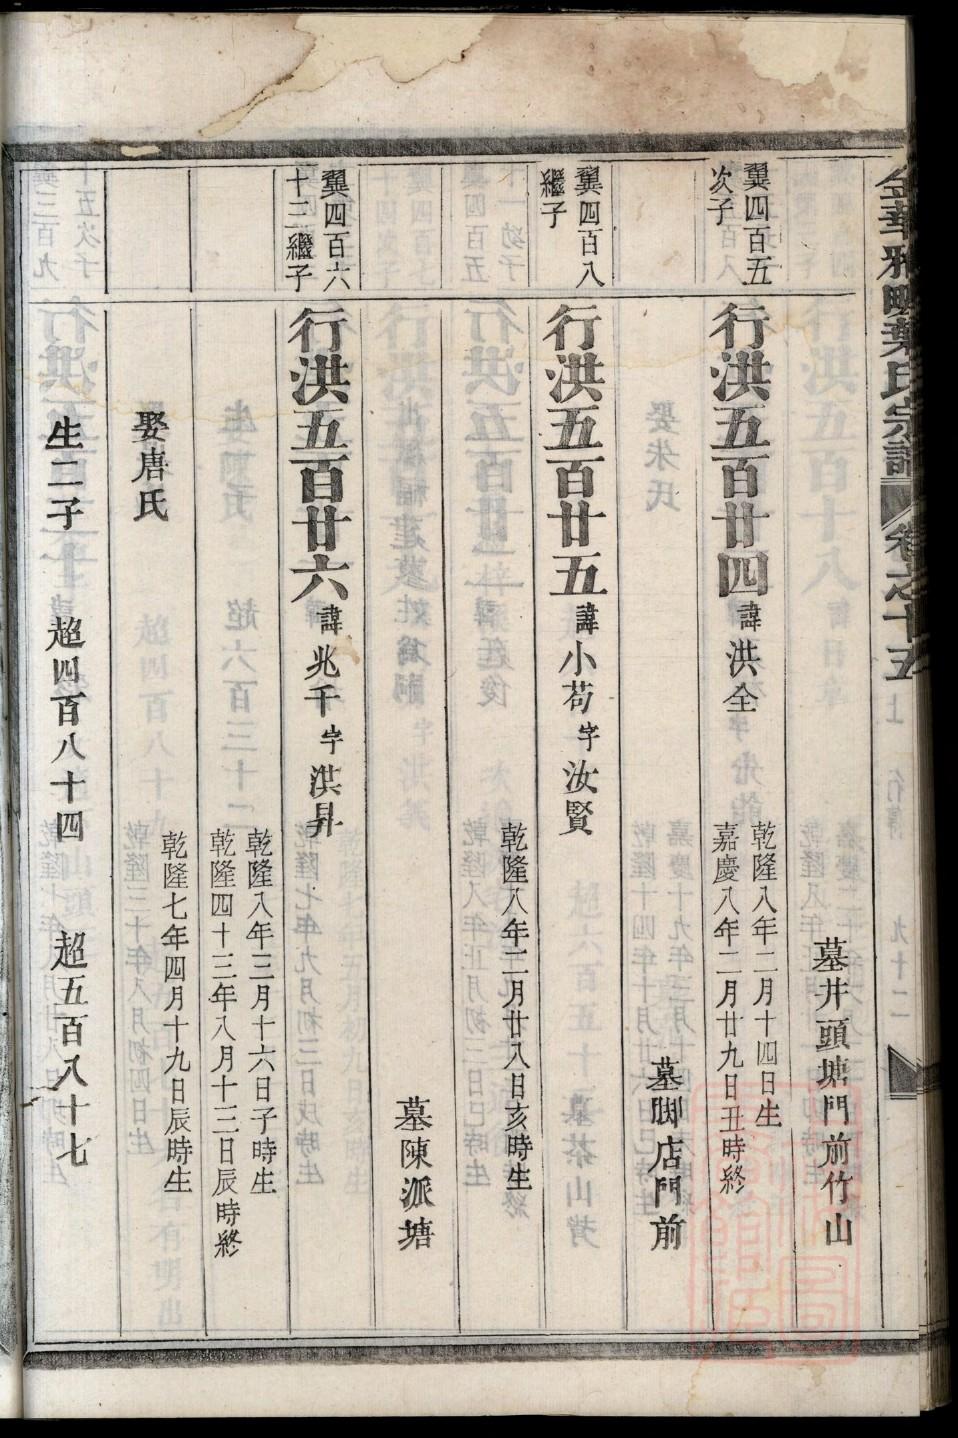 金華雅畈葉氏宗譜 卷之十五
墓井頭塘門前竹山
翼四百五
次子
行洪五百廿四 諱洪全
乾隆八年二月十四日生
嘉慶八年二月廿九日丑時終
墓脚店門前
翼四百八
繼子
行洪五百廿五 諱小苟 字汝賢
乾隆八年二月廿八日亥時生
墓陳派塘
翼四百六
十三繼子
行洪五百廿六 諱兆千 字洪昇
乾隆八年三月十六日子時生
乾隆四十三年八月十三日辰時終
娶唐氏
乾隆七年四月十九日辰時生
生二子 超四百八十四 超五百八十七